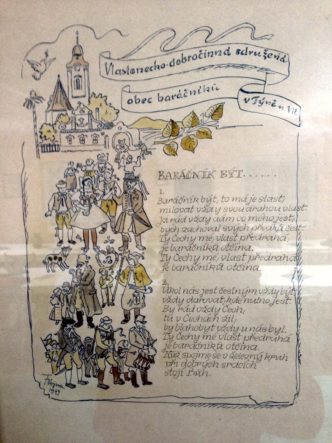 Vlastenecko-dobročinná sdružená
obec baráčníků
v Týně n. Vlt
BARÁČNÍK BÝT......
1.
Baráčník být, to má je slast,
milovat vždy svou drahou vlast.
Já rád vždy dám co moho jest,
bych zachoval svých předků čest.
Ty Čechy mé, vlast předrahá
je baráčníků otčina.
Ty Čechy mé, vlast předrahá
je baráčníků otčina.
2.
Úkol náš jest čestným vždy být
vždy darovat, kde nutno jest.
By rád vždy Čech,
tu v Čechách žil,
by blahobyt vždy u nás byl.
Ty Čechy mé vlast předrahá
je baráčníků otčina.
v železný kruh
při dobrých srdcích
stojí